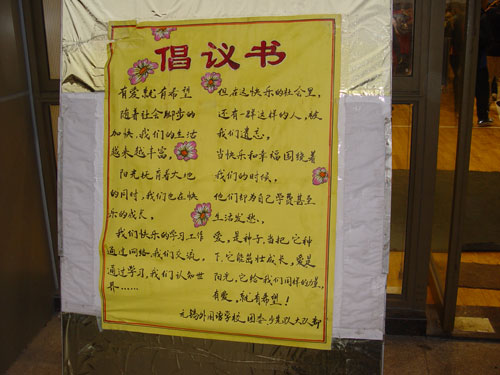 倡议书
有爱就有希望
随着社会脚步的
加快,我们的生活
越来越丰富,
阳光抚育着大地
的同时,我们也在快
乐的成长,
我们快乐的学习,工作
通过网络,我们交流,
通过学习,我们认知世
界……
但在这快乐的社会里,
还有一群这样的人,被
我们遗忘,
当快乐和幸福围绕着
我们的时候,
他们却为自己学费甚至
生活发愁、
爱,是种子,当把它种
下,它能茁壮成长,爱是
阳光,它给我们同样的力量,
有爱,就有希望!
无锡外国语学校 团委 少先队大队部